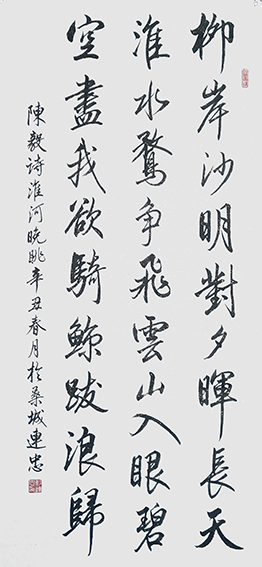 柳岸沙明對夕暉長天
淮水鶩争飛雲山入眼碧
空盡我欲騎鯨跋浪歸
陳毅诗淮河晚眺辛丑春月於桑城連忠